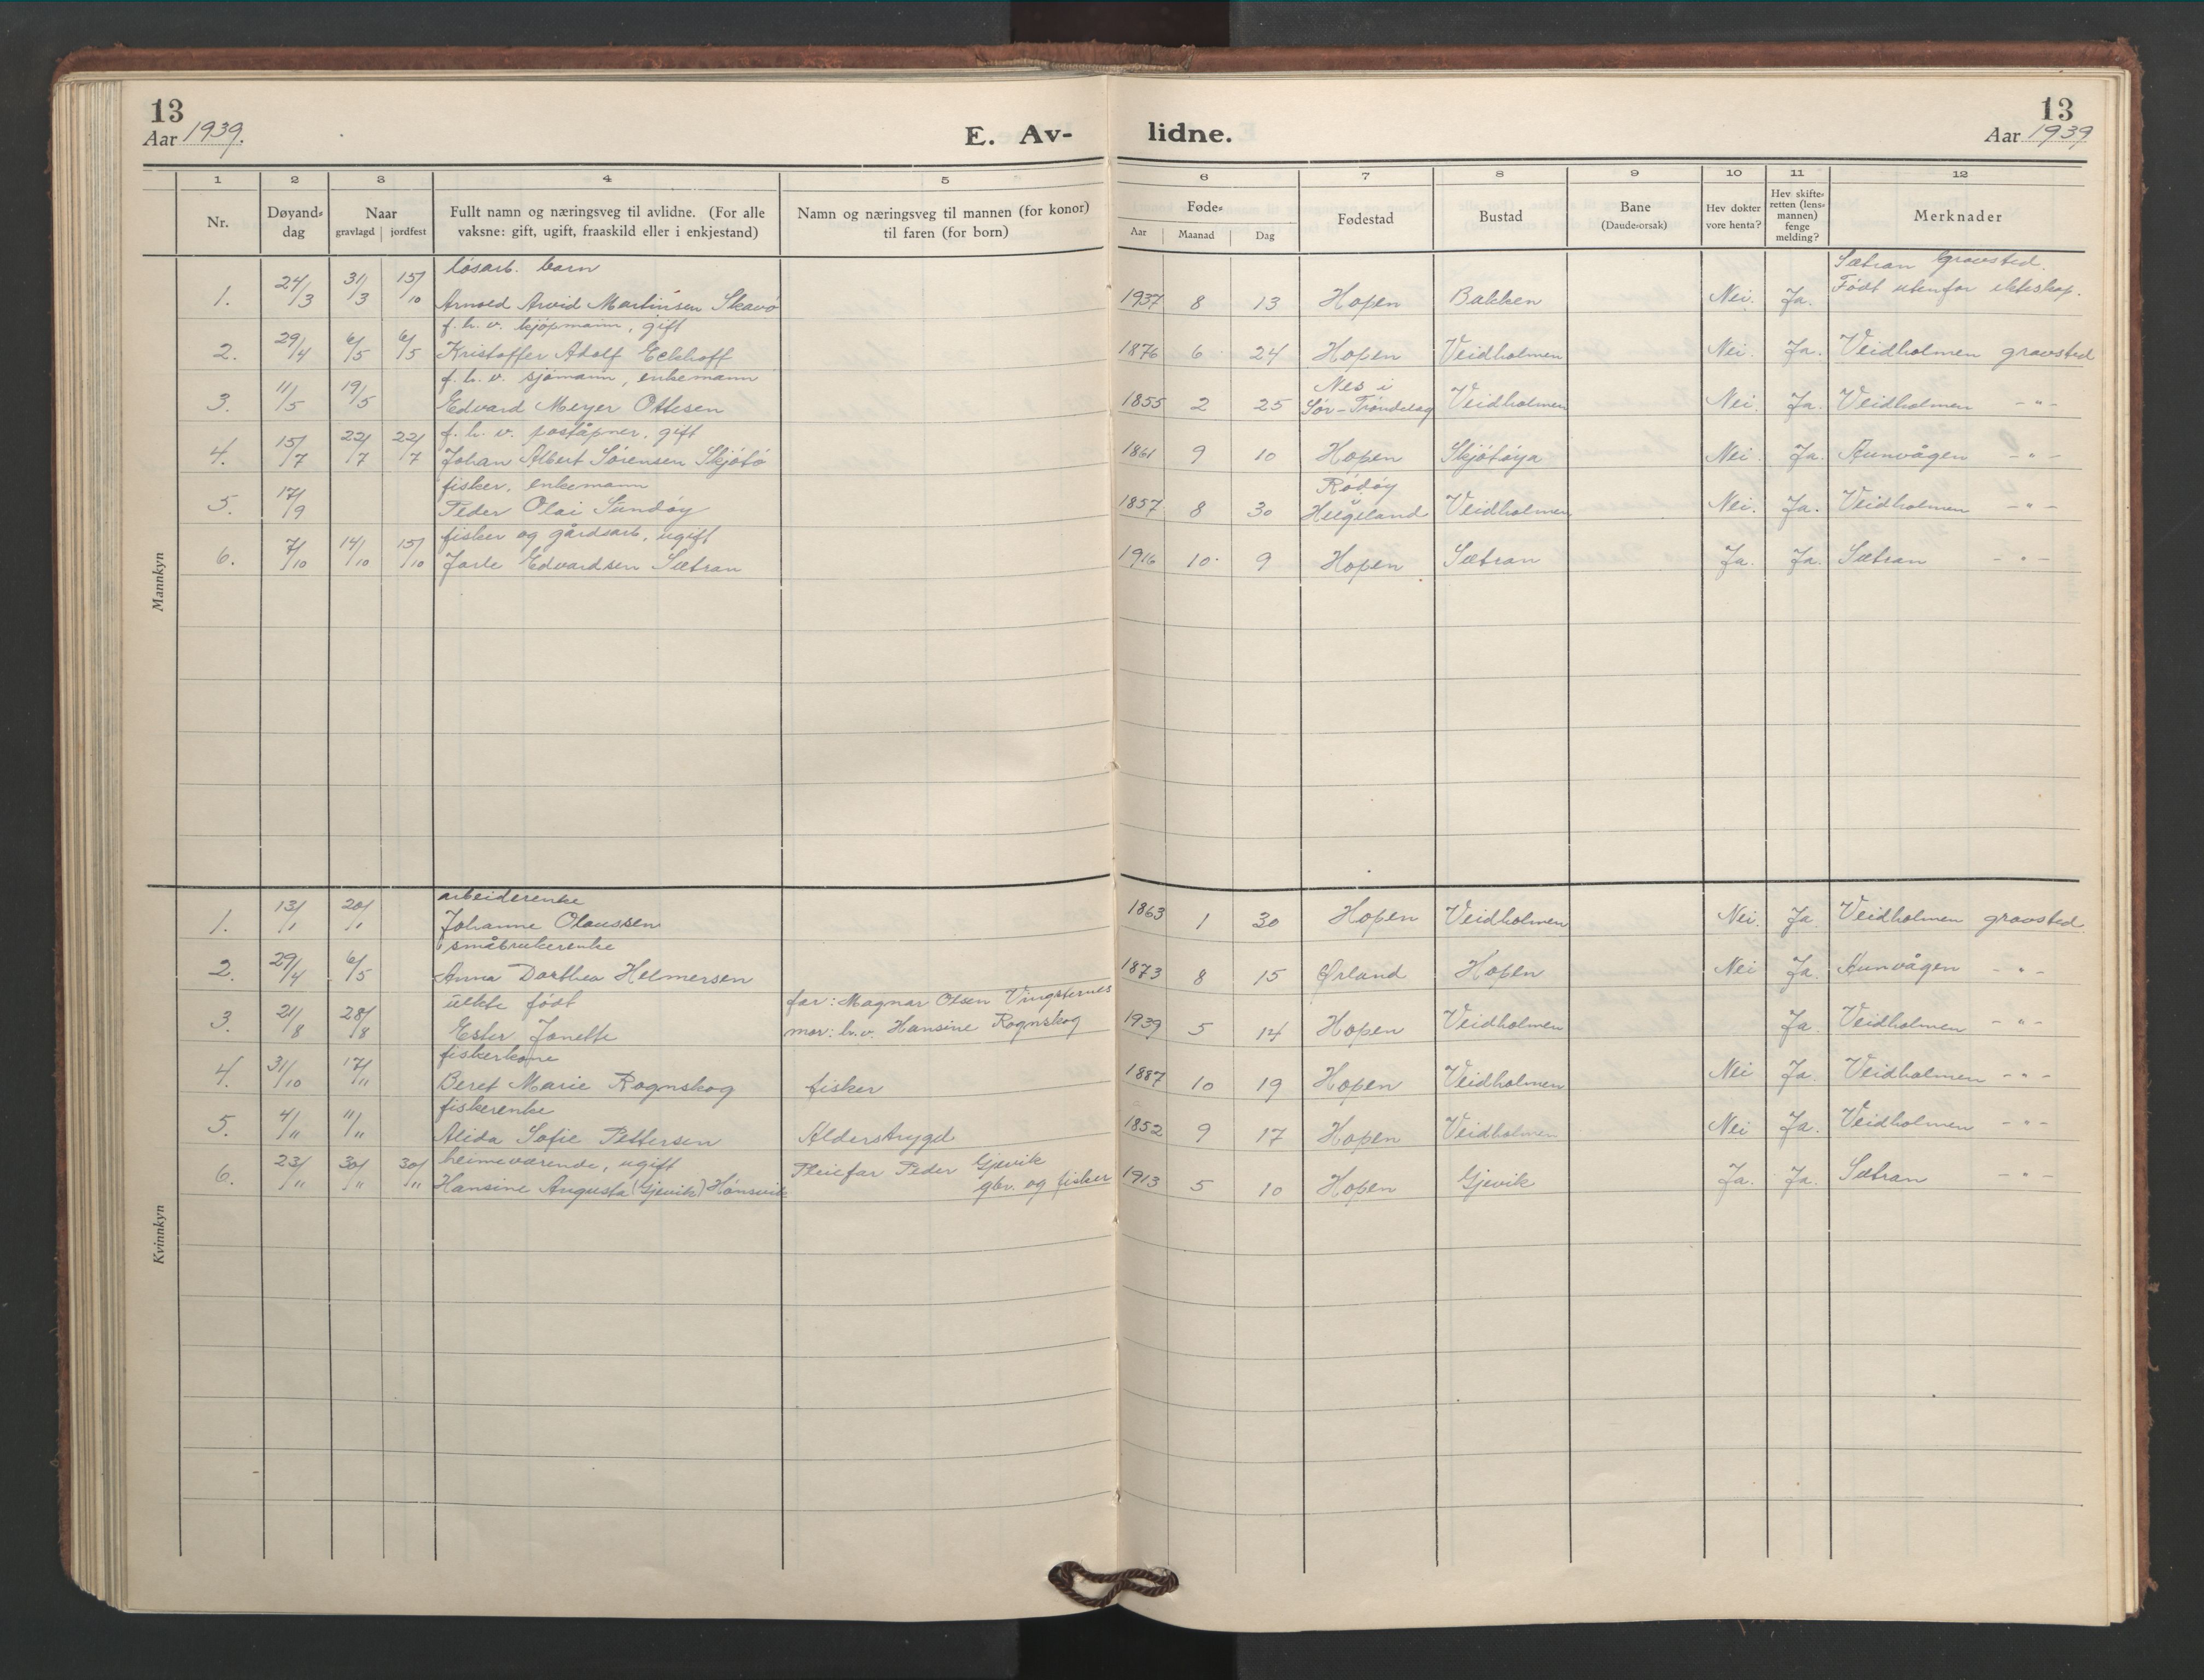 13
Aar 1939.
E. Av-
lidne.
13
Aar 1939
1 2 3 4 5 6 7 8 9 10 11 12
Nr.
Døyand-
dag
Naar
gravlagd jordfest
Fullt namn og næringsveg til avlidne. (For alle
vaksne: gift, ugift, fraaskild eller i enkjestand)
Namn og næringsveg til mannen (for konor)
til faren (for born)
Føde-
Aar Maanad Dag
Fødestad
Bustad
Bane
(Daude-orsak)
Hev dokter
vore henta?
Hev skifte-
retten (lens-
mannen)
fenge
melding?
Merknader
Mannkyn
løsarb. barn Sætran Gravsted.
1. 24/3 31/3 15/10 Arnold Arvid Martinsen Skavø 1937 8 13 Hopen Bakken Nei. Ja. Født utenfor ekteskap.
f. h. v. kjøpmann, gift
2. 29/4 6/5 6/5 Kristoffer Adolf Eckhoff 1876 6 24 Hopen Veidholmen Nei. Ja. Veidholmen gravsted
f. h. v. sjømann, enkemann Nes i
3. 11/5 19/5 Edvard Meyer Ottesen 1855 2 25 Sør-Trøndelag Veidholmen Nei. Ja. Veidholmen -"-
f. h. v. poståpner, gift
4. 15/7 22/7 22/7 Johan Albert Sørensen Skjøtø 1861 9 10 Hopen Skjøtøya Nei. Ja. Aunvågen -"-
fisker, enkemann Rødøy
5. 17/9 Peder Olai Sundøy 1857 8 30 Helgeland Veidholmen Nei. Ja. Veidholmen -"-
fisker og gårdsarb, ugift
6. 7/10 14/10 15/10 Jarle Edvardsen Sætran 1916 10 9 Hopen Sætran Ja. Ja. Sætran -"-
Kvinnkyn
arbeiderenke
1. 13/1 20/1 Johanne Olaussen 1863 1 30 Hopen Veidholmen Nei. Ja Veidholmen gravsted
småbrukerenke
2. 29/4 6/5 Anna Dorthea Helmersen 1873 8 15 Ørland Hopen Nei Ja. Aunvågen -"-
uekte født far: Magnar Olsen Vingsternes
3. 21/8 28/8 Ester Janette mor: h.v. Hansine Rognskog 1939 5 14 Hopen Veidholmen Ja. Veidholmen -"-
fiskerkone
4. 31/10 17/11 Beret Marie Rognskog fisker 1887 10 19 Hopen Veidholmen Nei Ja. Veidholmen -"-
fiskerenke
5. 4/11 11/11 Alida Sofie Pettersen Alderstrygd 1852 9 17 Hopen Veidholmen Nei Ja. Veidholmen -"-
heimeværende, ugift Pleiefar Peder Gjevik
6. 23/11 30/11 30/11 Hansine Augusta (Gjevik) Hønsvik gbr. og fisker 1913 5 10 Hopen Gjevik Ja. Ja. Sætran -"-